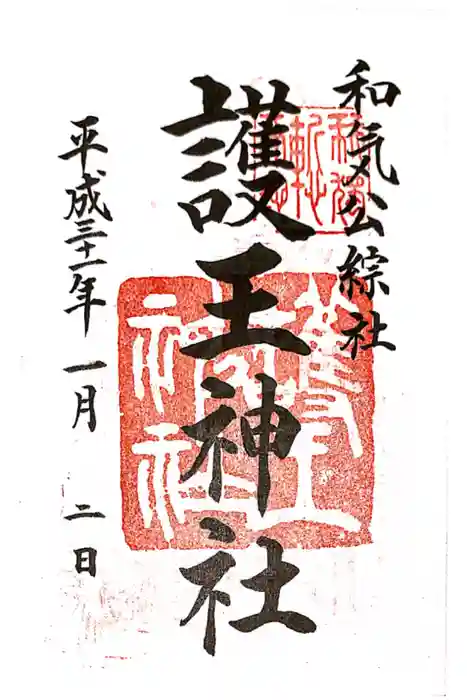 和気公綜社
護王神社
平成三十一年 一月 二日